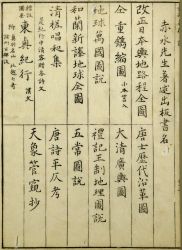 赤水先生著定出板書目
改正日本輿地路程全圖
仝 重鐫縮圖
地球萬國圖説
和蘭新譯地球全圖
清槎唱和集
東奥紀行
唐土歴代沿革圖
大清廣輿圖
禮記王制地理圖説
五常圖説
唐詩平仄考
天象管窺抄